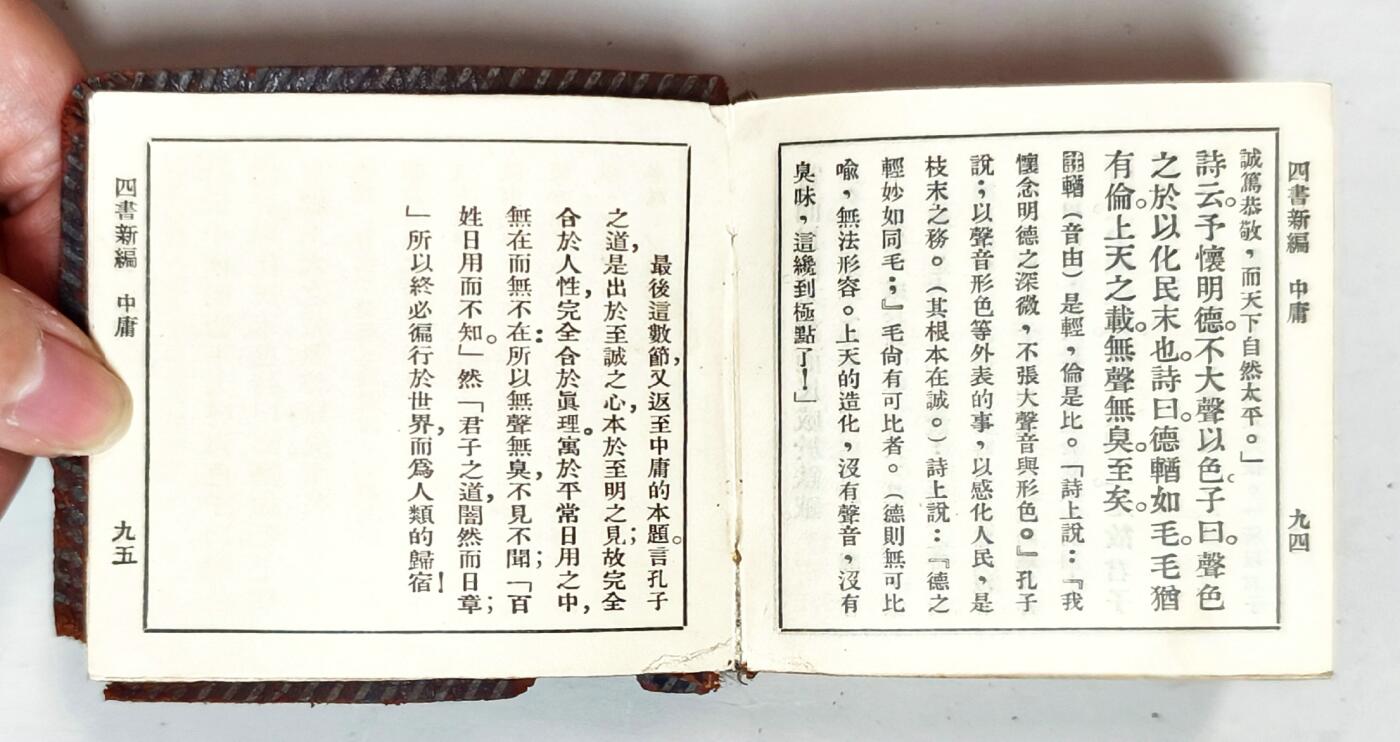 四書新編 中庸 九四
誠篤恭敬，而天下自然太平。」
詩云。予懷明德。不大聲以色。子曰。聲色
之於以化民末也。詩曰。德輶如毛。毛猶
有倫。上天之載。無聲無臭。至矣。
註輶（音由）是輕，倫是比。「詩上說：『我
懷念明德之深微，不張大聲音與形色。』孔子
說；以聲音形色等外表的事，以感化人民，是
枝末之務。（其根本在誠。）詩上說：『德之
輕妙如同毛；』毛尙有可比者。（德則無可比
喩，無法形容。上天的造化，沒有聲音，沒有
臭味，這纔到極點了！」
最後這數節，又返至中庸的本題。言孔子
之道，是出於至誠之心，本於至明之見；故完全
合於人性，完全合於眞理。寓於平常日用之中，
無在而無不在：所以無聲無臭，不見不聞；「百
姓日用而不知。」然「君子之道，闇然而日章；
」所以終必徧行於世界，而爲人類的歸宿！
四書新編 中庸 九五